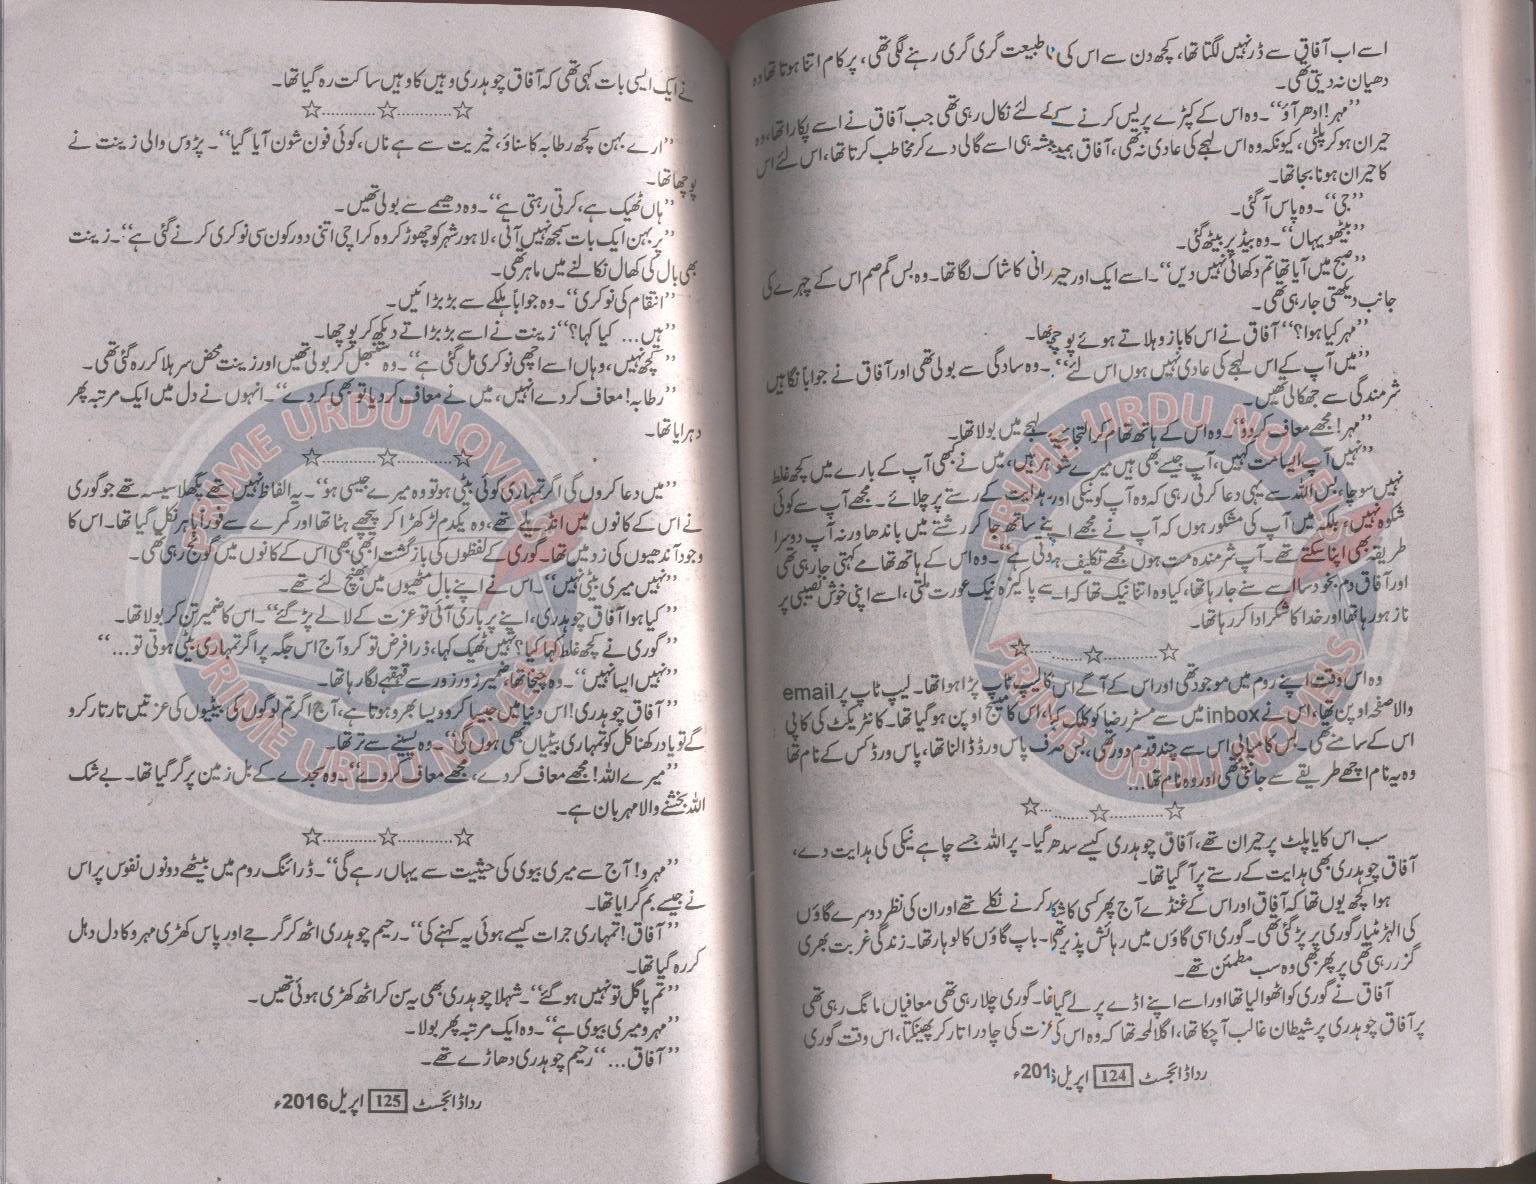 اسے اب آفاق سے ڈر نہیں لگتا تھا، کچھ دن سے اس کی طبیعت گری گری رہنے لگی تھی، پر کام اتنا ہوتا تھا وہ
دھیان نہ دیتی تھی۔
’’مہر! ادھر آؤ‘‘۔ وہ اس کے کپڑے پریس کرنے کے لئے نکال رہی تھی جب آفاق نے اسے پکارا تھا، وہ
حیران ہو کر پلٹی، کیونکہ وہ اس لہجے کی عادی نہ تھی، آفاق ہمیشہ ہی اسے گالی دے کر مخاطب کرتا تھا، اس لئے اس
کا حیران ہونا بجا تھا۔
’’جی‘‘۔ وہ پاس آ گئی۔
’’بیٹھو یہاں‘‘۔ وہ بیڈ پر بیٹھ گئی۔
’’صبح میں آیا تھا تم دکھائی نہیں دیں‘‘۔ اسے ایک اور حیرانی کا شاک لگا تھا۔ وہ بس گم صم اس کے چہرے کی
جانب دیکھتی جا رہی تھی۔
’’مہر کیا ہوا؟‘‘ آفاق نے اس کا بازو ہلاتے ہوئے پوچھا تھا۔
’’میں آپ کے اس لہجے کی عادی نہیں ہوں اس لئے‘‘۔ وہ سادگی سے بولی تھی اور آفاق نے جواباً نگاہیں
شرمندگی سے جھکا لی تھیں۔
’’مہر! مجھے معاف کر دو‘‘۔ وہ اس کے ہاتھ تھام کر التجائیہ لہجے میں بولا تھا۔
’’نہیں آپ ایسا مت کہیں، آپ جیسے بھی ہیں میرے شوہر ہیں، میں نے کبھی آپ کے بارے میں کچھ غلط
نہیں سوچا، بس اللہ سے یہی دعا کرتی رہی کہ وہ آپ کو نیکی اور ہدایت کے رستے پر چلائے۔ مجھے آپ سے کوئی
شکوہ نہیں، بلکہ میں آپ کی مشکور ہوں کہ آپ نے مجھے اپنے ساتھ جائز رشتے میں باندھا ورنہ آپ دوسرا
طریقہ بھی اپنا سکتے تھے۔ آپ شرمندہ مت ہوں مجھے تکلیف ہوتی ہے‘‘۔ وہ اس کے ہاتھ تھامے کہتی جا رہی تھی
اور آفاق دم بخود سا اسے سنے جا رہا تھا، کیا وہ اتنا نیک تھا کہ اسے پاکیزہ نیک عورت ملتی، اسے اپنی خوش نصیبی پر
ناز ہو رہا تھا اور خدا کا شکر ادا کر رہا تھا۔
☆..........☆..........☆
وہ اس وقت اپنے روم میں موجود تھی اور اس کے آگے اس کا لیپ ٹاپ پڑا ہوا تھا۔ لیپ ٹاپ پر email
والا صفحہ اوپن تھا، اس نے inbox میں سے مسٹر رضا کو کلک کیا، اس کا میسج اوپن ہو گیا تھا۔ کانٹریکٹ کی کاپی
اس کے سامنے تھی۔ بس کامیابی اس سے چند قدم دور تھی، بس صرف پاس ورڈ ڈالنا تھا، پاس ورڈ کس کے نام تھا
وہ یہ نام اچھے طریقے سے جانتی تھی اور وہ نام تھا...
☆..........☆..........☆
سب اس کایا پلٹ پر حیران تھے، آفاق چوہدری کیسے سدھر گیا۔ پر اللہ جسے چاہے نیکی کی ہدایت دے،
آفاق چوہدری بھی ہدایت کے رستے پر آ گیا تھا۔
ہوا کچھ یوں تھا کہ آفاق اور اس کے غنڈے آج پھر کسی کا شکار کرنے نکلے تھے اور ان کی نظر دوسرے گاؤں
کی الہڑ مٹیار گوری پر پڑ گئی تھی۔ گوری اسی گاؤں میں رہائش پذیر تھی۔ باپ گاؤں کا لوہار تھا۔ زندگی غربت بھری
گزر رہی تھی پر پھر بھی وہ سب مطمئن تھے۔
آفاق نے گوری کو اٹھوا لیا تھا اور اسے اپنے اڈے پر لے گیا تھا۔ گوری چلا رہی تھی معافیاں مانگ رہی تھی
پر آفاق چوہدری پر شیطان غالب آ چکا تھا، اگلا لمحہ تھا کہ وہ اس کی عزت کی چادر اتار کر پھینکتا، اس وقت گوری
ردا ڈائجسٹ 124 اپریل 201ء
نے ایک ایسی بات کہی تھی کہ آفاق چوہدری وہیں کا وہیں ساکت رہ گیا تھا۔
☆..........☆..........☆
’’ارے بہن کچھ رطابہ کا سناؤ، خیریت سے ہے ناں، کوئی فون شون آیا گیا‘‘۔ پڑوس والی زینت نے
پوچھا تھا۔
’’ہاں ٹھیک ہے، کرتی رہتی ہے‘‘۔ وہ دھیمے سے بولی تھیں۔
’’پر بہن ایک بات سمجھ نہیں آئی، لاہور شہر کو چھوڑ کر وہ کراچی اتنی دور کون سی نوکری کرنے گئی ہے‘‘۔ زینت
بھی بال کی کھال نکالنے میں ماہر تھی۔
’’انتقام کی نوکری‘‘۔ وہ جواباً ہلکے سے بڑبڑائیں۔
’’ہیں... کیا کہا؟‘‘ زینت نے اسے بڑبڑاتے دیکھ کر پوچھا۔
’’کچھ نہیں، وہاں اسے اچھی نوکری مل گئی ہے‘‘۔ وہ سنبھل کر بولی تھیں اور زینت محض سر ہلا کر رہ گئی تھی۔
’’رطابہ! معاف کر دے انہیں، میں نے معاف کر دیا تو بھی کر دے‘‘۔ انہوں نے دل میں ایک مرتبہ پھر
دہرایا تھا۔
☆..........☆..........☆
’’میں دعا کروں گی اگر تمہاری کوئی بیٹی ہو تو وہ میرے جیسی ہو‘‘۔ یہ الفاظ نہیں تھے پگھلا سیسہ تھے جو گوری
نے اس کے کانوں میں انڈیلے تھے، وہ یکدم لڑکھڑا کر پیچھے ہٹا تھا اور کمرے سے فوراً باہر نکل گیا تھا۔ اس کا
وجود آندھیوں کی زد میں تھا۔ گوری کے لفظوں کی بازگشت ابھی بھی اس کے کانوں میں گونج رہی تھی۔
’’نہیں میری بیٹی نہیں‘‘۔ اس نے اپنے بال مٹھیوں میں بھینچ لئے تھے۔
’’کیا ہوا آفاق چوہدری، اپنے پر باری آئی تو عزت کے لالے پڑ گئے‘‘۔ اس کا ضمیر تن کر بولا تھا۔
’’گوری نے کچھ غلط کہا کیا؟ نہیں ٹھیک کہا، ذرا فرض تو کرو آج اس جگہ پر اگر تمہاری بیٹی ہوتی تو...‘‘
’’نہیں ایسا نہیں‘‘۔ وہ چیخا تھا، ضمیر زور زور سے قہقہے لگا رہا تھا۔
’’آفاق چوہدری! اس دنیا میں جیسا کرو ویسا بھرو ہوتا ہے، آج اگر تم لوگوں کی بیٹیوں کی عزتیں تار تار کرو
گے تو یاد رکھنا کل کو تمہاری بیٹیاں بھی ہوں گی‘‘۔ وہ پسینے سے تر تھا۔
’’میرے اللہ! مجھے معاف کر دے، مجھے معاف کر دے‘‘۔ وہ سجدے کے بل زمین پر گر گیا تھا۔ بے شک
اللہ بخشنے والا مہربان ہے۔
☆..........☆..........☆
’’مہرو! آج سے میری بیوی کی حیثیت سے یہاں رہے گی‘‘۔ ڈرائنگ روم میں بیٹھے دونوں نفوس پر اس
نے جیسے بم گرایا تھا۔
’’آفاق! تمہاری جرات کیسے ہوئی یہ کہنے کی‘‘۔ رحیم چوہدری اٹھ کر گرجے اور پاس کھڑی مہرو کا دل دہل
کر رہ گیا تھا۔
’’تم پاگل تو نہیں ہو گئے‘‘۔ شہلا چوہدری بھی یہ سن کر اٹھ کھڑی ہوئی تھیں۔
’’مہرو میری بیوی ہے‘‘۔ وہ ایک مرتبہ پھر بولا۔
’’آفاق...‘‘ رحیم چوہدری دھاڑے تھے۔
ردا ڈائجسٹ 125 اپریل 2016ء
PRIME URDU NOVELS
PRIME URDU NOVELS
PRIME URDU NOVELS
PRIME URDU NOVELS